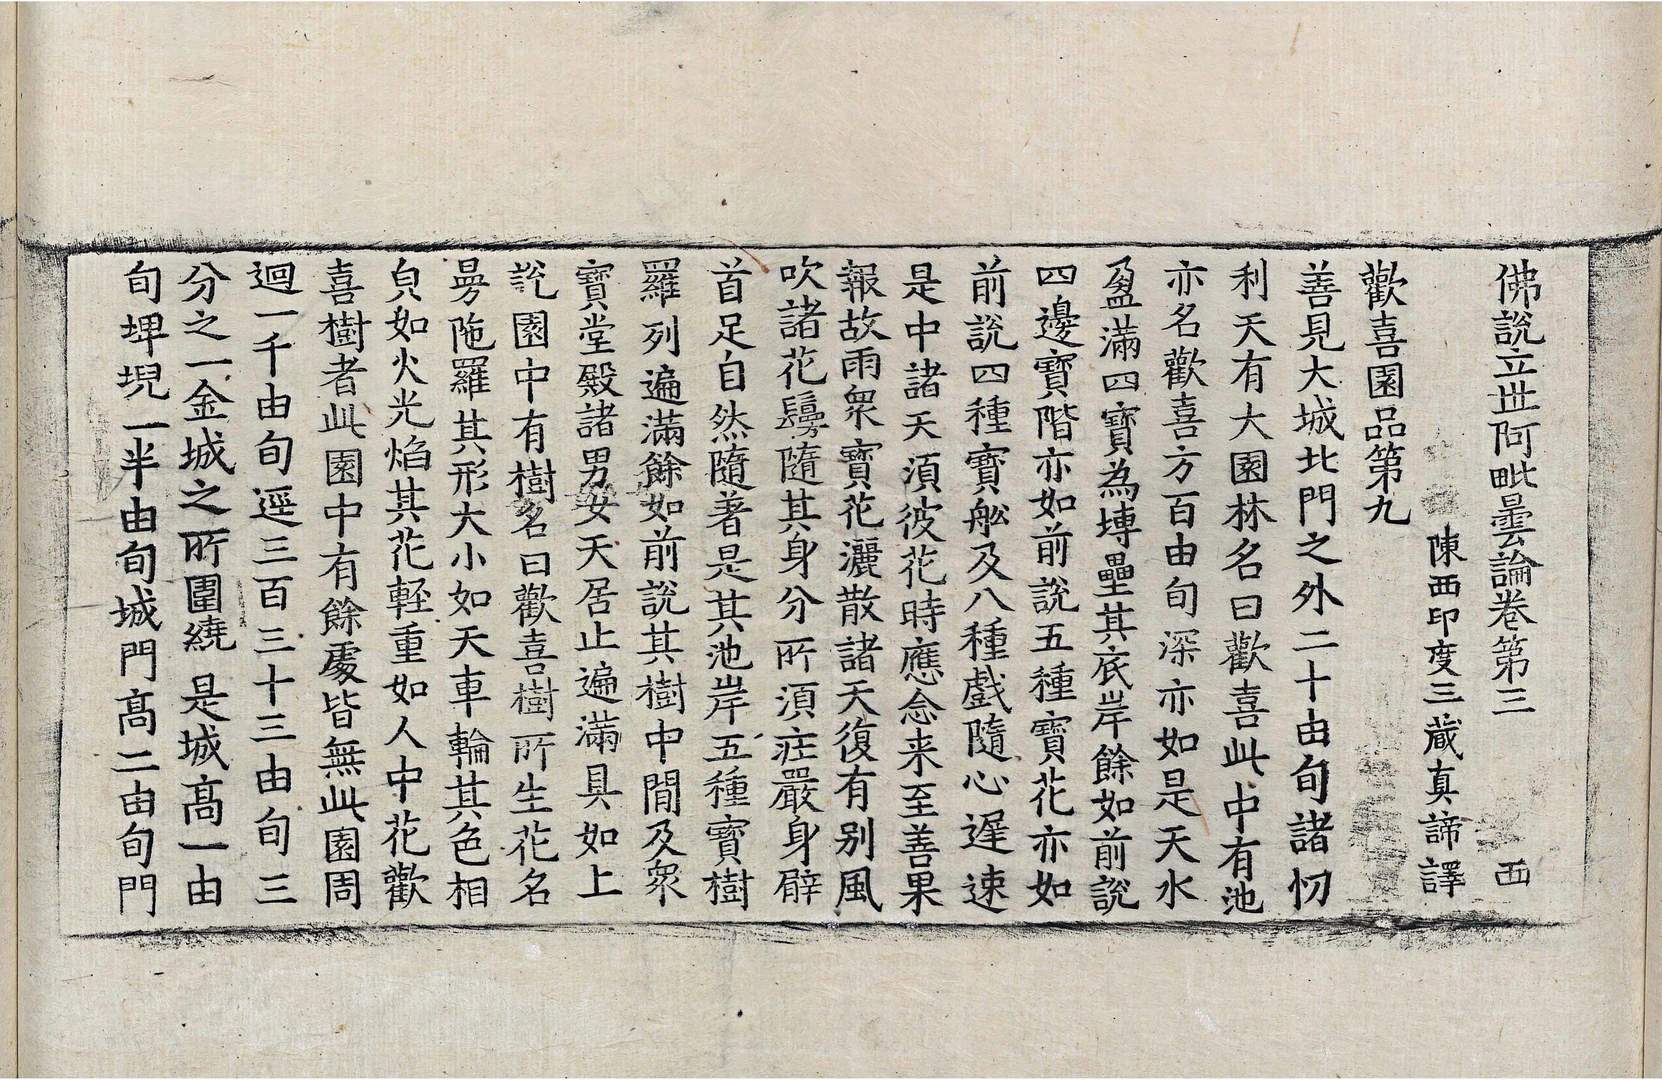 佛說立世阿毗曇論卷第三 西
陳西印度三藏真諦譯
歡喜園品第九
善見大城北門之外二十由旬諸忉
利天有大園林名曰歡喜此中有池
亦名歡喜方百由旬深亦如是天水
盈滿四寶為塼壘其底岸餘如前說
四邊寶階亦如前說五種寶花亦如
前說四種寶舩及八種戲隨心遲速
是中諸天湏彼花時應念来至善果
報故雨衆寶花灑散諸天復有别風
吹諸花鬘隨其身分所湏庄嚴身臂
首足自然隨著是其池岸五種寶樹
羅列遍滿餘如前說其樹中間及衆
寶堂殿諸男女天居止遍滿具如上
說園中有樹名曰歡喜樹所生花名
曼陁羅其形大小如天車輪其色相
皃如火光焰其花輕重如人中花歡
喜樹者此園中有餘處皆無此園周
迴一千由旬逕三百三十三由旬三
分之一金城之所圍繞是城髙一由
旬埤堄一半由旬城門髙二由旬門